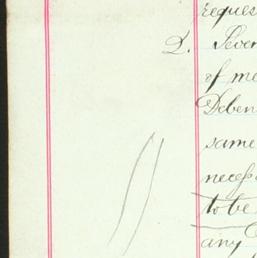 reques
2. Sever
of me
Deben
same
necess
to be
any